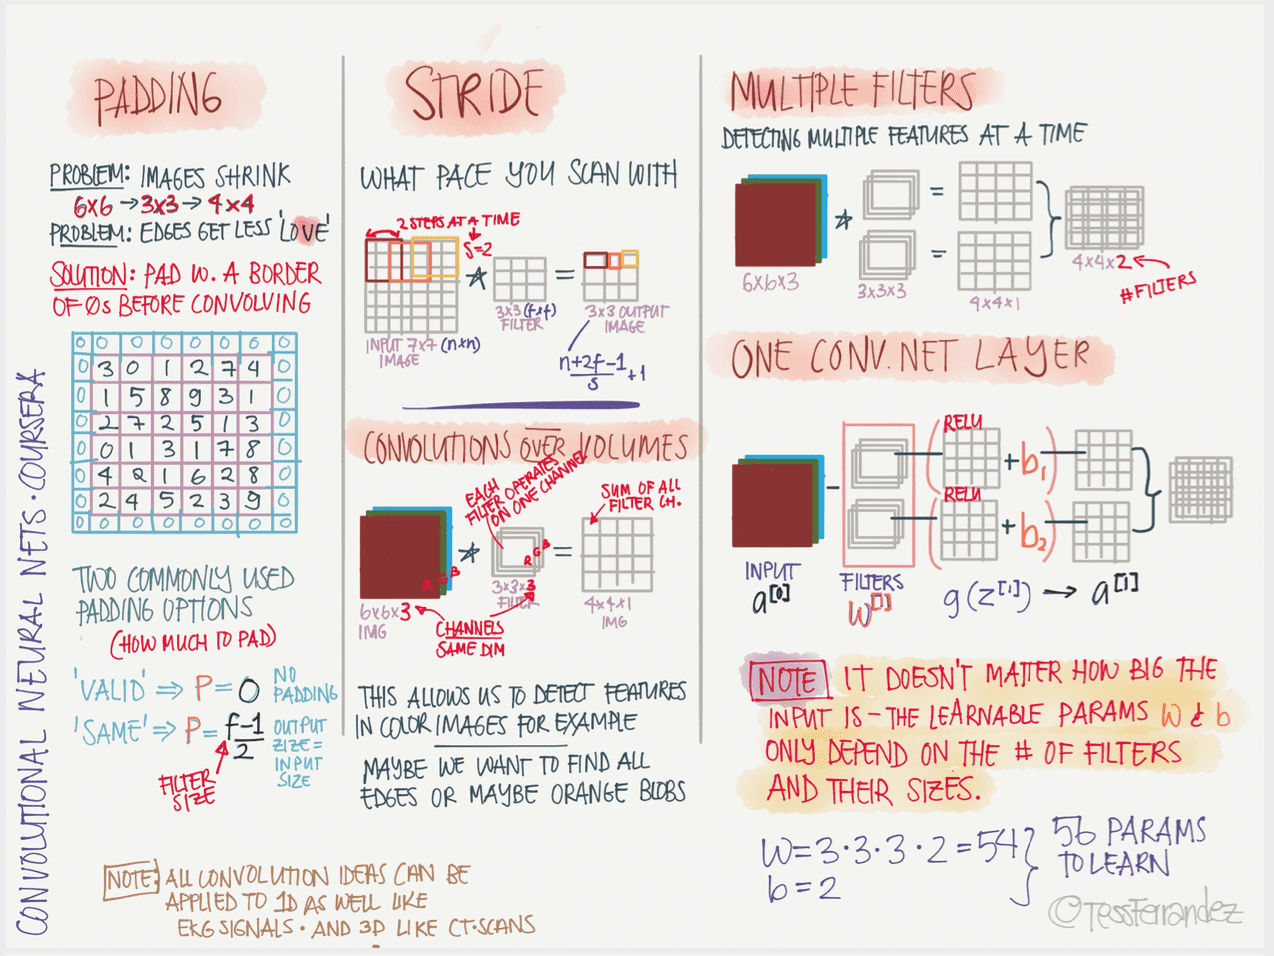 CONVOLUTIONAL NEURAL NETS · COURSERA
PADDING
PROBLEM: IMAGES SHRINK
6x6 → 3x3 → 4x4
PROBLEM: EDGES GET LESS 'LOVE'
SOLUTION: PAD W. A BORDER
OF 0s BEFORE CONVOLVING
0 0 0 0 0 0 0 0
0 3 0 1 2 7 4 0
0 1 5 8 9 3 1 0
0 2 7 2 5 1 3 0
0 0 1 3 1 7 8 0
0 4 2 1 6 2 8 0
0 2 4 5 2 3 9 0
0 0 0 0 0 0 0 0
TWO COMMONLY USED
PADDING OPTIONS
(HOW MUCH TO PAD)
'VALID' ⇒ P = 0 NO
PADDING
'SAME' ⇒ P = f-1/2 OUTPUT
ZIZE =
INPUT
SIZE
FILTER
SIZE
NOTE: ALL CONVOLUTION IDEAS CAN BE
APPLIED TO 1D AS WELL LIKE
EKG SIGNALS · AND 3D LIKE CT-SCANS
STRIDE
WHAT PACE YOU SCAN WITH
2 STEPS AT A TIME
S=2
* =
INPUT 7x7 (nxn)
IMAGE
3x3 (fxf)
FILTER
3x3 OUTPUT
IMAGE
n+2f-1/s +1
CONVOLUTIONS OVER VOLUMES
EACH
FILTER OPERATES
ON ONE CHANNEL
SUM OF ALL
FILTER CH.
R G B
* =
R G B
6x6x3
IMG
3x3x3
FILTER
4x4x1
IMG
CHANNELS
SAME DIM
THIS ALLOWS US TO DETECT FEATURES
IN COLOR IMAGES FOR EXAMPLE
MAYBE WE WANT TO FIND ALL
EDGES OR MAYBE ORANGE BLOBS
MULTIPLE FILTERS
DETECTING MULTIPLE FEATURES AT A TIME
* =
=
6x6x3
3x3x3
4x4x1
4x4x2
# FILTERS
ONE CONV. NET LAYER
RELU
( + b1 )
RELU
( + b2 )
INPUT
a[0]
FILTERS
W[1]
g(z[1]) → a[1]
NOTE IT DOESN'T MATTER HOW BIG THE
INPUT IS - THE LEARNABLE PARAMS W & b
ONLY DEPEND ON THE # OF FILTERS
AND THEIR SIZES.
W = 3·3·3·2 = 54
b = 2
56 PARAMS
TO LEARN
©TessFerrandez